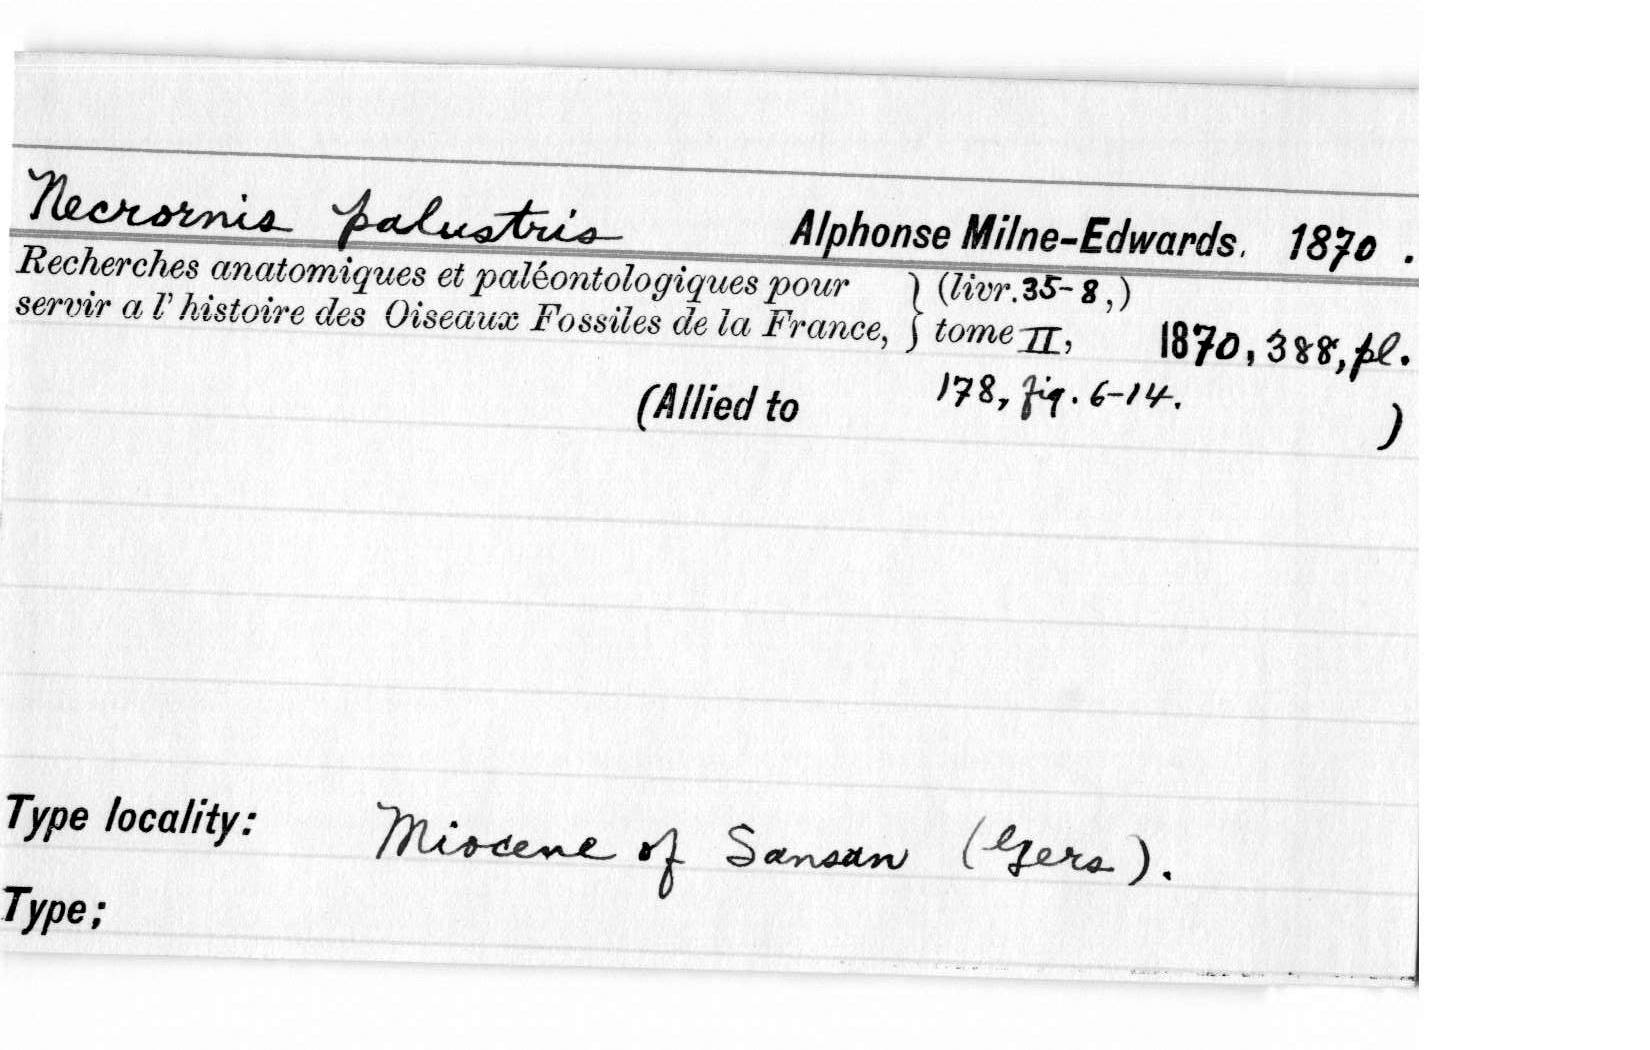 Necrornis palustris Alphonse Milne-Edwards. 1870.
Recherches anatomiques et paléontologiques pour } (livr. 35-8,)
servir a l'histoire des Oiseaux Fossiles de la France, } tome II, 1870, 388, pl.
178, fig. 6-14.
(Allied to )
Type locality: Miocene of Sansan (Gers).
Type;